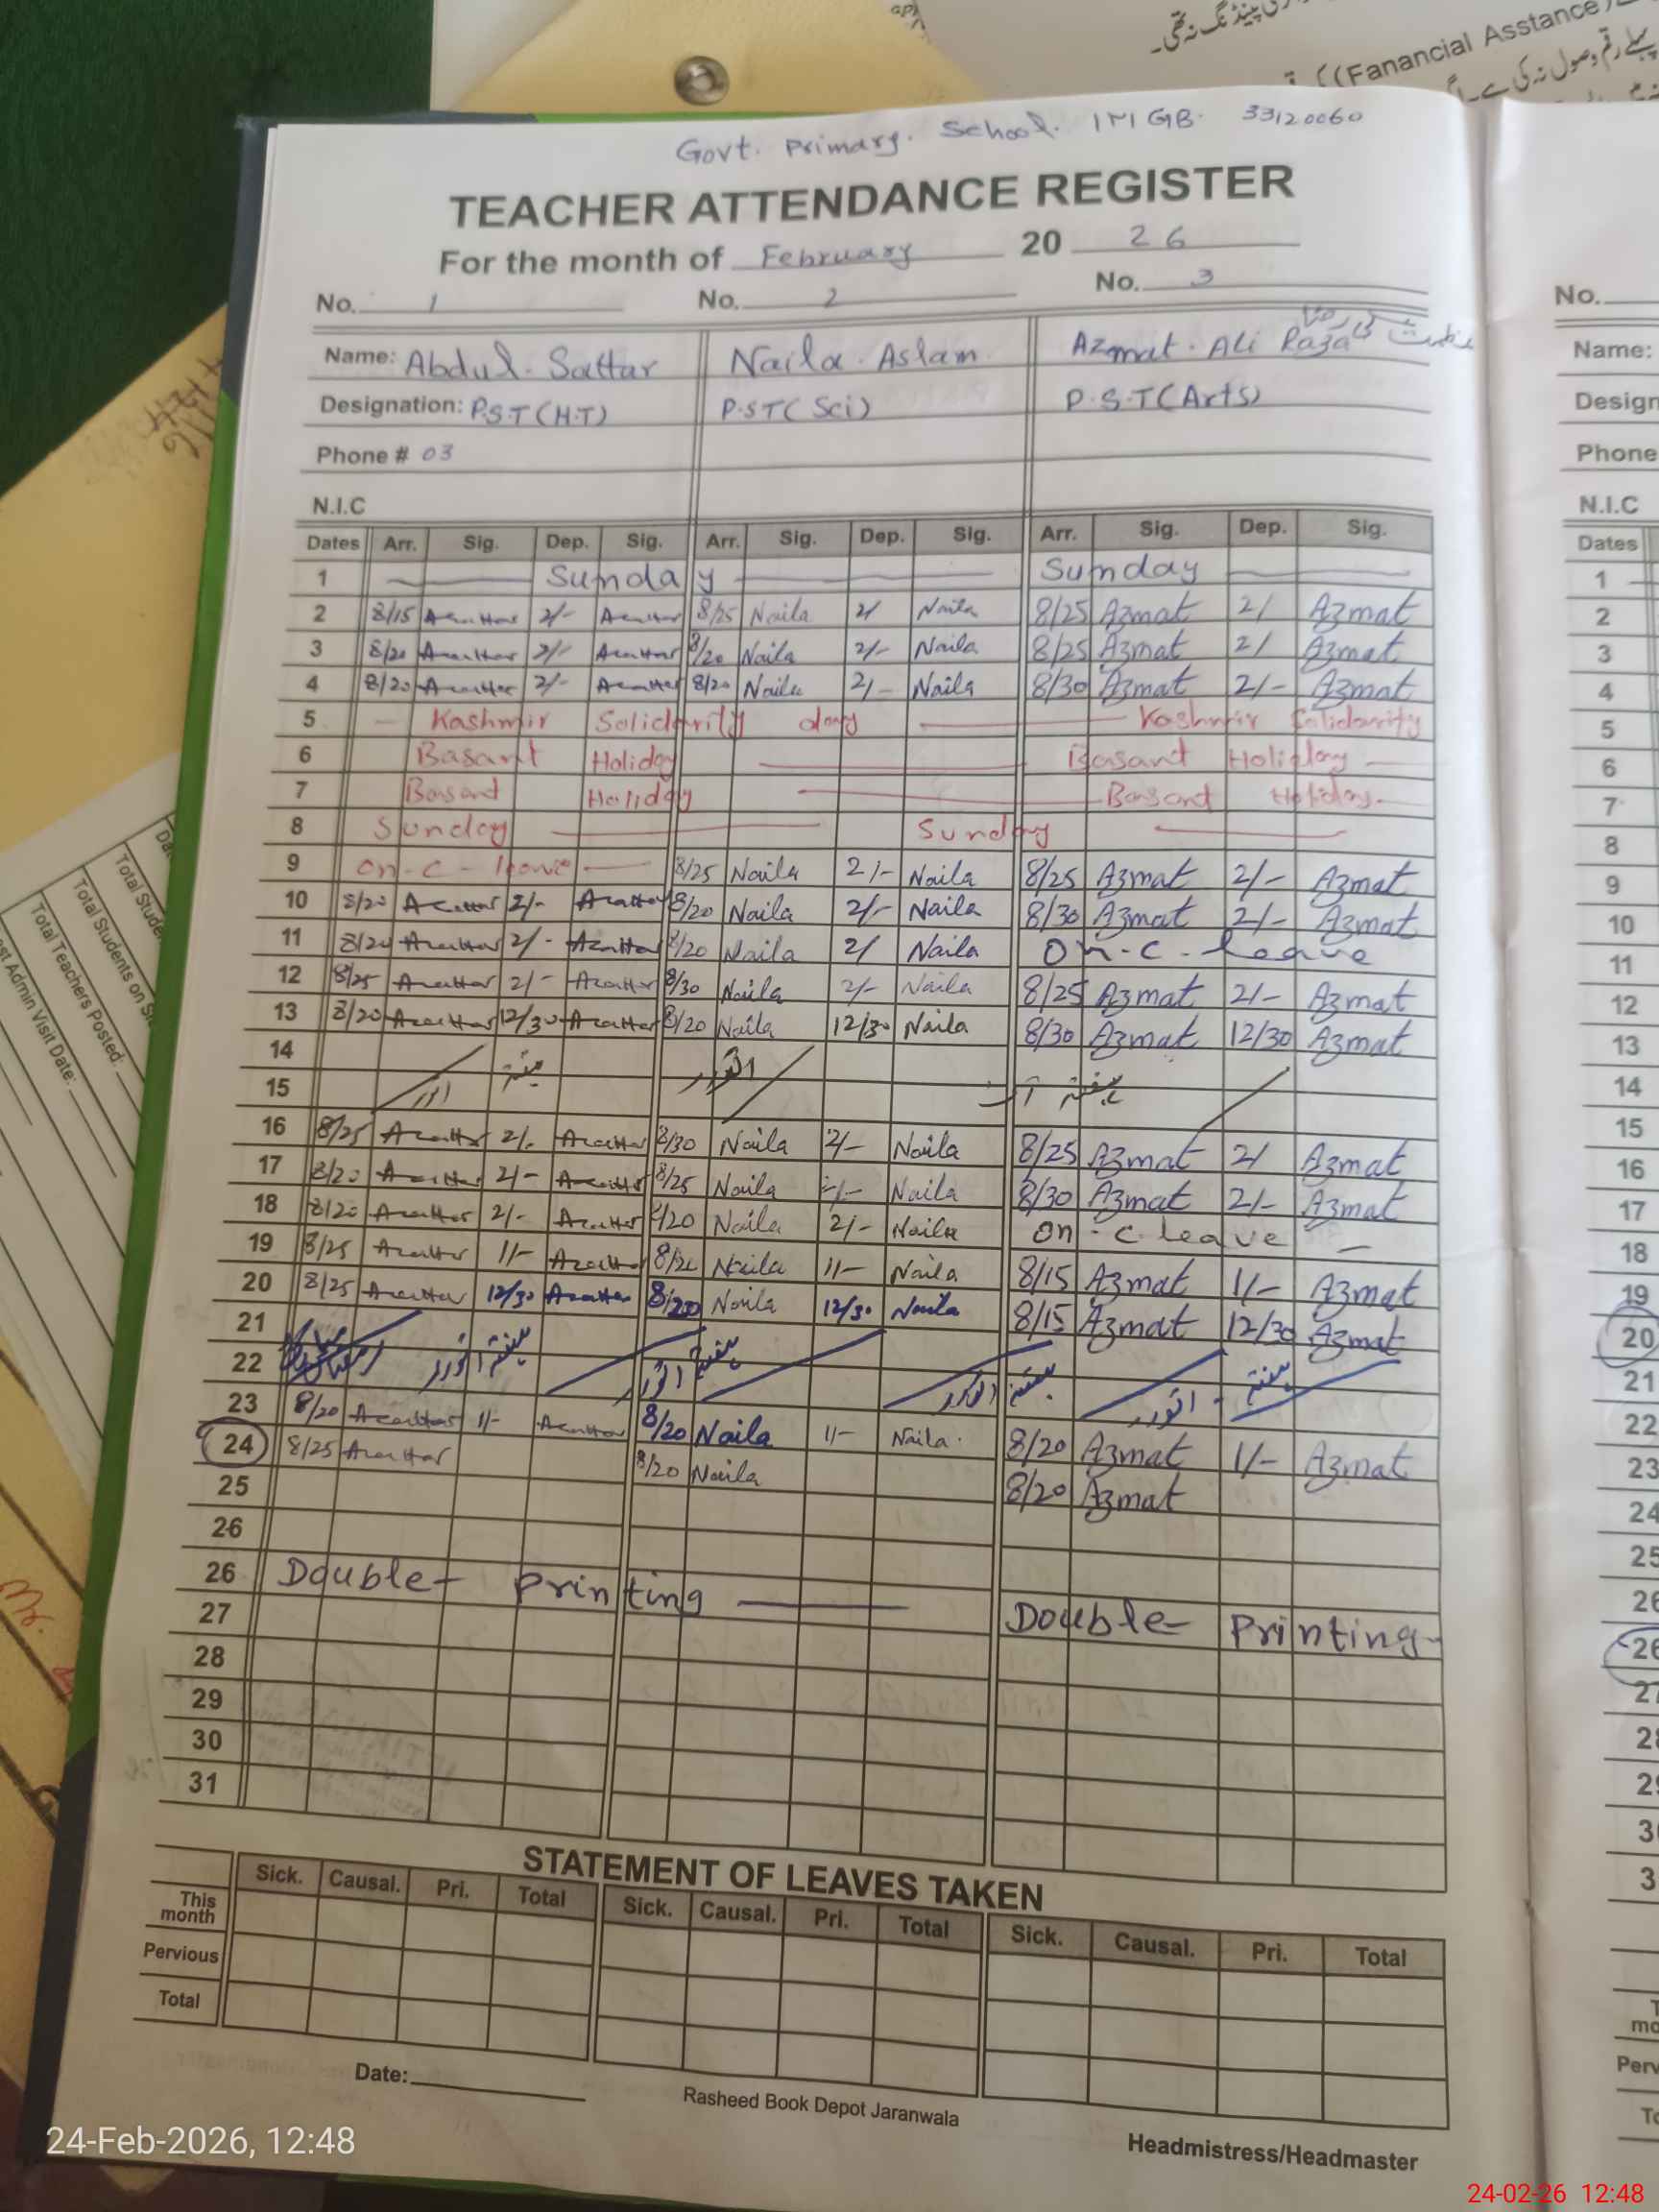 (Fanancial Asstance)
Govt. Primary. School. 33120060
TEACHER ATTENDANCE REGISTER
For the month of February 20 26
No. 1 No. 2 No. 3
Name: Abdul. Sattar Naila. Aslam Azmat. Ali Raza
Designation: P.S.T (H.T) P.ST( Sci) P.S.T(Arts)
Phone # 03
N.I.C
Dates Arr. Sig. Dep. Sig. Arr. Sig. Dep. Sig. Arr. Sig. Dep. Sig.
1 Sunday Sunday
2 8/15 Asattar 2/- Asattar 8/25 Naila 2/ Naila 8/25 Azmat 2/ Azmat
3 8/20 Asattar 2/- Asattar 8/20 Naila 2/- Naila 8/25 Azmat 2/ Azmat
4 8/20 Asattar 2/- Asattar 8/20 Naila 2/- Naila 8/30 Azmat 2/- Azmat
5 Kashmir Solidarity day Kashmir Solidarity
6 Basant Holiday Basant Holiday
7 Basant Holiday Basant Holiday
8 Sunday Sunday
9 on-C-leave 8/25 Naila 2/- Naila 8/25 Azmat 2/- Azmat
10 8/20 Asattar 2/- Asattar 8/20 Naila 2/- Naila 8/30 Azmat 2/- Azmat
11 8/20 Asattar 2/- Asattar 8/20 Naila 2/ Naila on-C-leave
12 8/25 Asattar 2/- Asattar 8/30 Naila 2/- Naila 8/25 Azmat 2/- Azmat
13 8/20 Asattar 12/30 Asattar 8/20 Naila 12/30 Naila 8/30 Azmat 12/30 Azmat
14 ہفتہ اتوار ہفتہ
15 اتوار
16 8/25 Asattar 2/- Asattar 8/30 Naila 2/- Naila 8/25 Azmat 2/ Azmat
17 8/20 Asattar 2/- Asattar 8/25 Naila Naila 8/30 Azmat 2/- Azmat
18 8/20 Asattar 2/- Asattar 8/20 Naila 2/- Naila on-C-leave
19 8/25 Asattar 1/- Asattar Naila 1/- Naila 8/15 Azmat 1/- Azmat
20 8/25 Asattar 12/30 Asattar Naila 12/30 Naila 8/15 Azmat 12/30 Azmat
21 ہفتہ اتوار ہفتہ اتوار ہفتہ
22 ہفتہ اتوار اتوار
23 8/20 Asattar 1/- Asattar 8/20 Naila 1/- Naila 8/20 Azmat 1/- Azmat
24 8/25 Asattar 8/20 Naila 8/20 Azmat
25
26
26 Double Printing Double Printing
27
28
29
30
31
STATEMENT OF LEAVES TAKEN
Sick. Causal. Pri. Total Sick. Causal. Pri. Total Sick. Causal. Pri. Total
This month
Pervious
Total
Date:
Rasheed Book Depot Jaranwala
Headmistress/Headmaster
No.
Name:
Design
Phone
N.I.C
Dates
1
2
3
4
5
6
7
8
9
10
11
12
13
14
15
16
17
18
19
20
21
22
23
24
25
26
26
27
28
29
Total Students on
Total Teachers Posted:
Admin Visit Date:
24-Feb-2026, 12:48
24-02-26 12:48